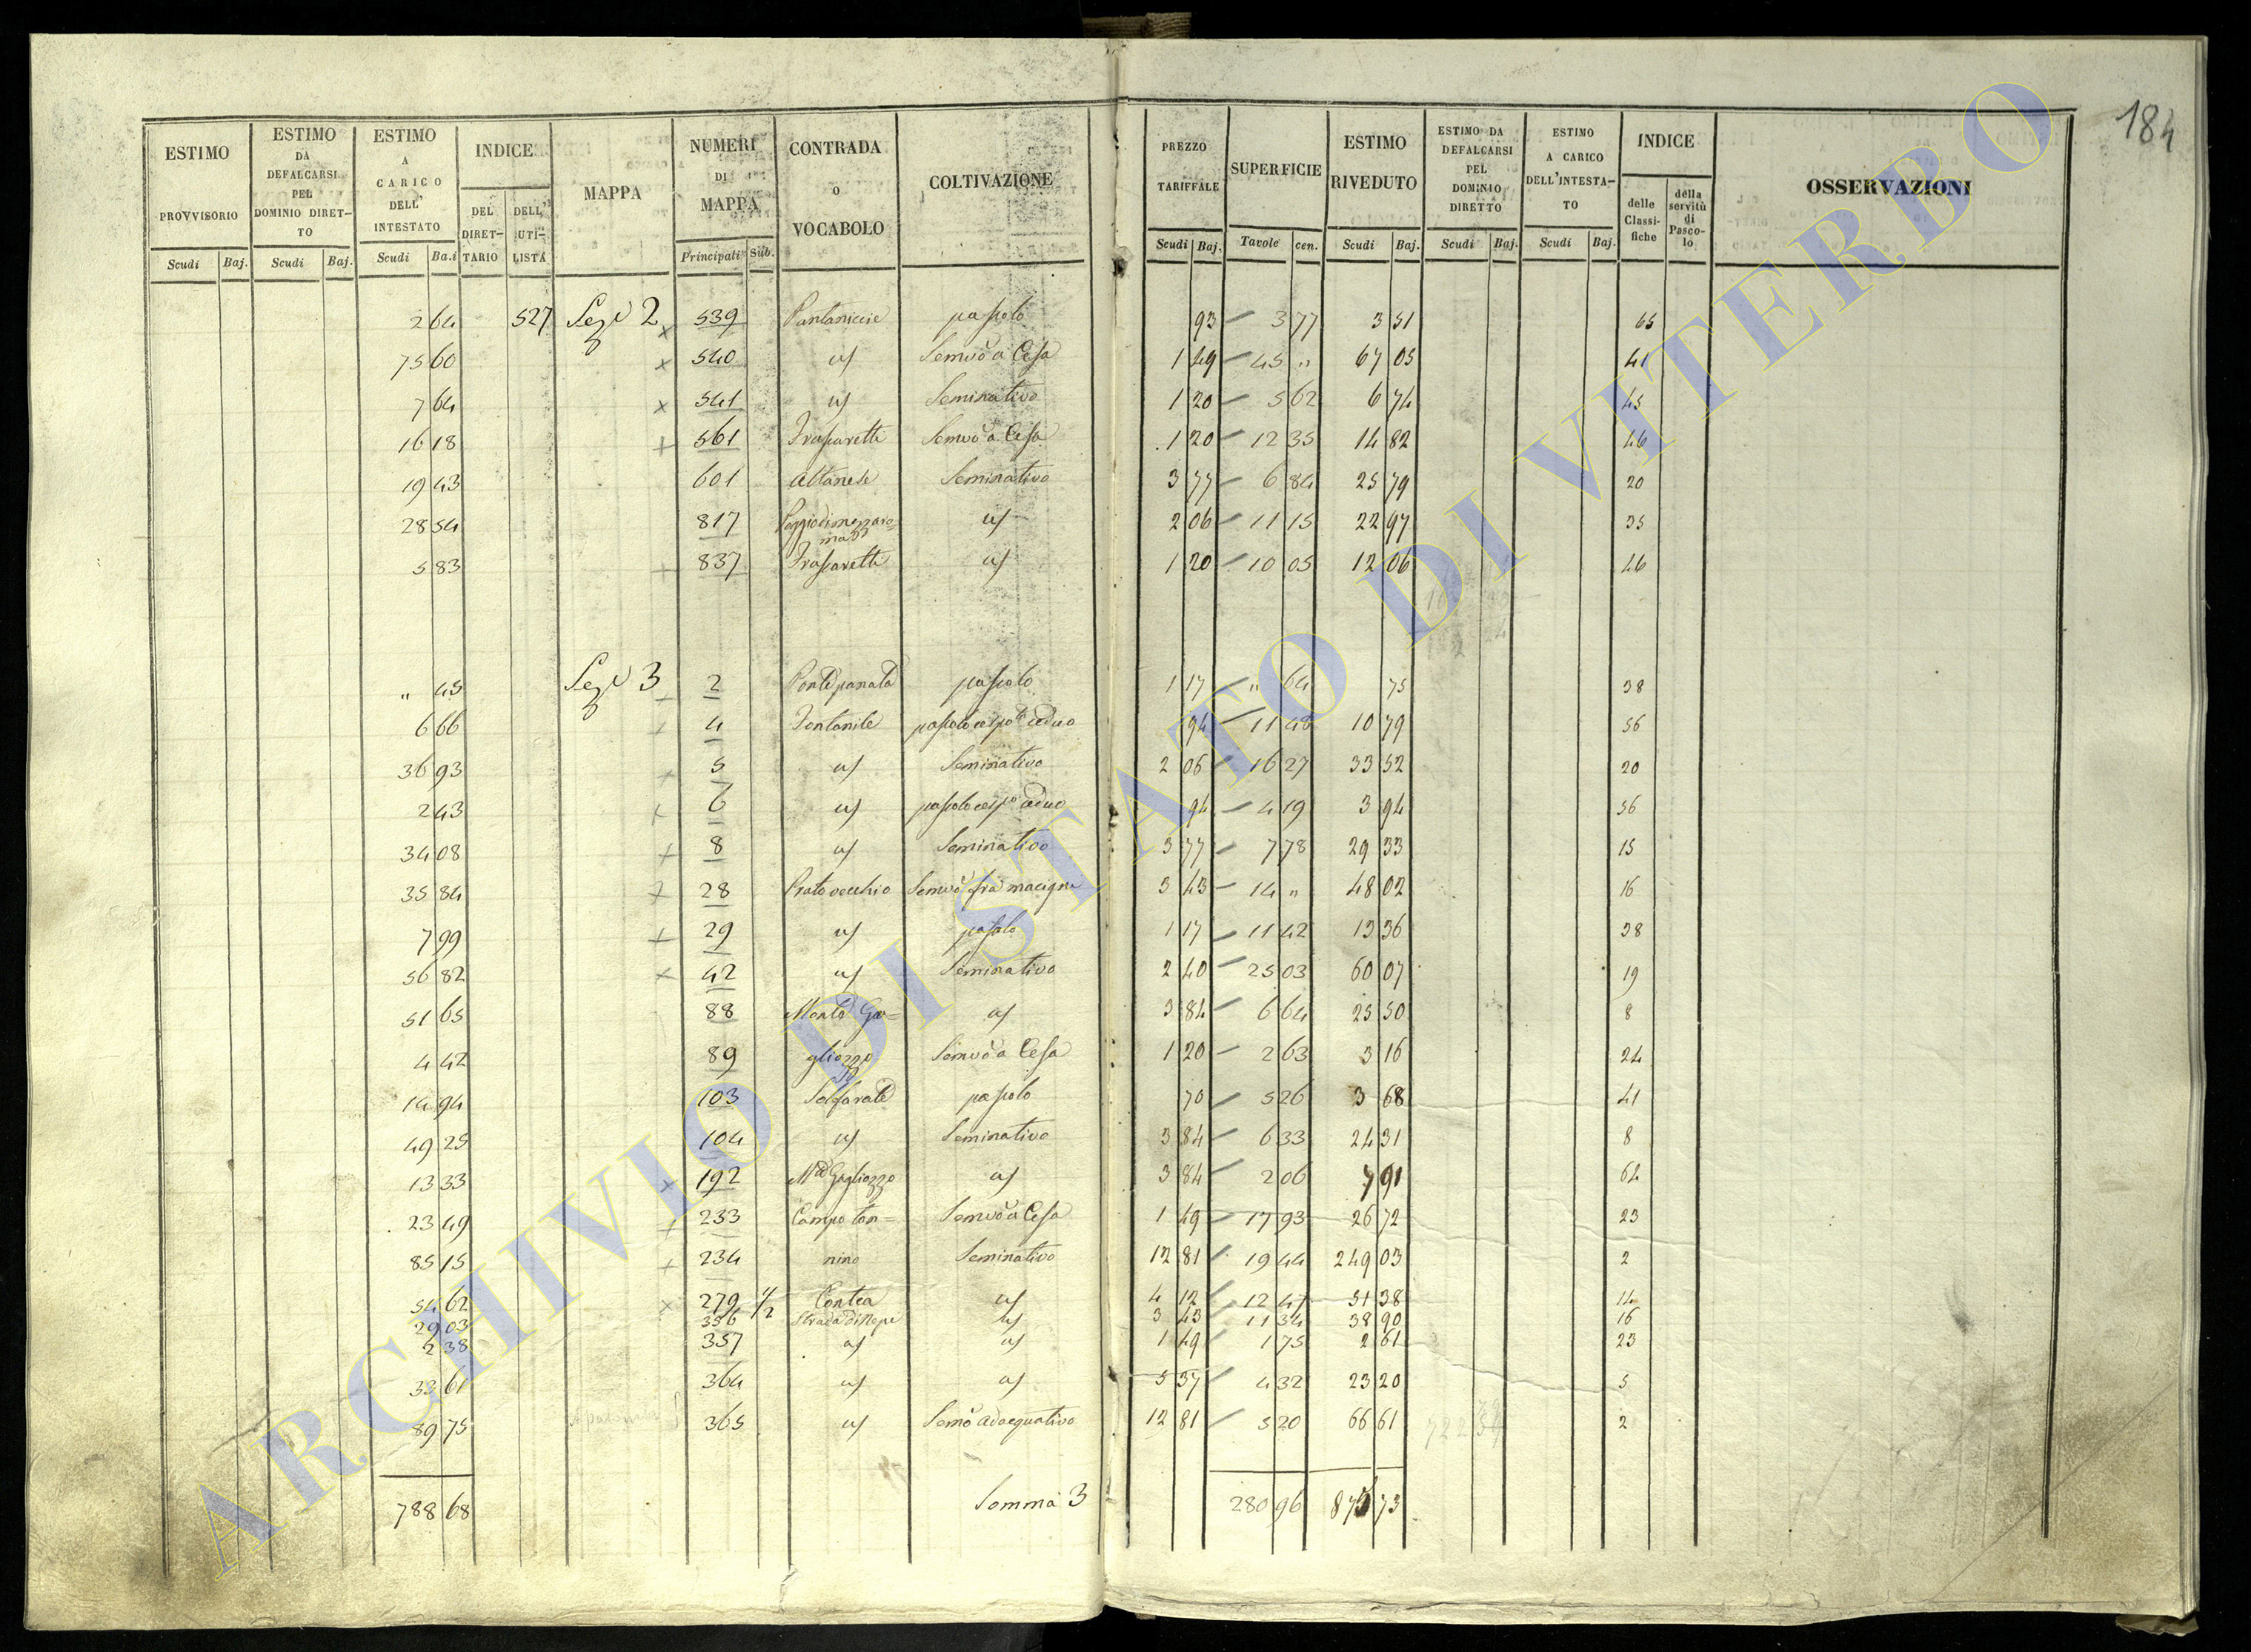 184
ESTIMO PROVVISORIO Scudi Baj.
ESTIMO DA DEFALCARSI PEL DOMINIO DIRETTO Scudi Baj.
ESTIMO A CARICO DELL' INTESTATO Scudi Ba.i
INDICE DEL DIRETTARIO DELL' UTILISTA
MAPPA
NUMERI DI MAPPA Principali Sub.
CONTRADA O VOCABOLO
COLTIVAZIONE
PREZZO TARIFFALE Scudi Baj.
SUPERFICIE Tavole cen.
ESTIMO RIVEDUTO Scudi Baj.
ESTIMO DA DEFALCARSI PEL DOMINIO DIRETTO Scudi Baj.
ESTIMO A CARICO DELL'INTESTATO Scudi Baj.
INDICE delle Classifiche della servitù di Pascolo
OSSERVAZIONI
2 64 527 Sez. 2 x 539 pascolo 93 3 77 3 51 65
75 60 x 540 id Semvo a Cesa 1 49 45 " 67 05 41
7 64 x 541 id Seminativo 1 20 5 62 6 74 45
16 18 + 561 Frascaretti Semvo a Cesa 1 20 12 35 14 82 46
19 43 601 Altanese Seminativo 3 77 6 84 25 79 20
28 54 817 Poggio di mezzaroma id 2 06 11 15 22 97 35
5 83 + 837 Frascaretti id 1 20 10 05 12 06 46
" 45 Sez. 3 2 Ponte panato pascolo 1 17 " 64 75 38
6 66 + 4 Fontanile pascolo cespo ceduo 94 11 48 10 79 56
36 93 + 5 id Seminativo 2 06 16 27 33 52 20
2 43 + 6 id pascolo cespo ceduo 94 4 19 3 94 56
34 08 + 8 id Seminativo 3 77 7 78 29 33 15
35 84 + 28 Prato vecchio Semvo fra macigni 3 43 14 " 48 02 16
7 99 + 29 id pascolo 1 17 11 42 13 36 38
56 82 x 42 id Seminativo 2 40 25 03 60 07 19
51 65 88 Monte Ga= id 3 84 6 64 25 50 8
4 42 89 gliozzo Semvo a Cesa 1 20 2 63 3 16 24
14 94 103 Solfarate pascolo 70 5 26 3 68 41
49 25 104 id Seminativo 3 84 6 33 24 31 8
13 33 x 192 Mte Gagliozzo id 3 84 2 06 7 91 64
23 49 + 233 Campo ton= Semvo a Cesa 1 49 17 93 26 72 23
85 15 + 234 nino Seminativo 12 81 19 44 249 03 2
54 62 x 279 1/2 Contea id 4 12 12 47 51 38 14
29 03 356 Strada di Nepi id 3 43 11 34 38 90 16
2 38 357 id id 1 49 1 75 2 61 23
33 61 364 id id 5 37 4 32 23 20 5
89 75 365 id Semo adaequativo 12 81 5 20 66 61 2
788 68 Somma 3 280 96 73
ARCHIVIO DI STATO DI VITERBO